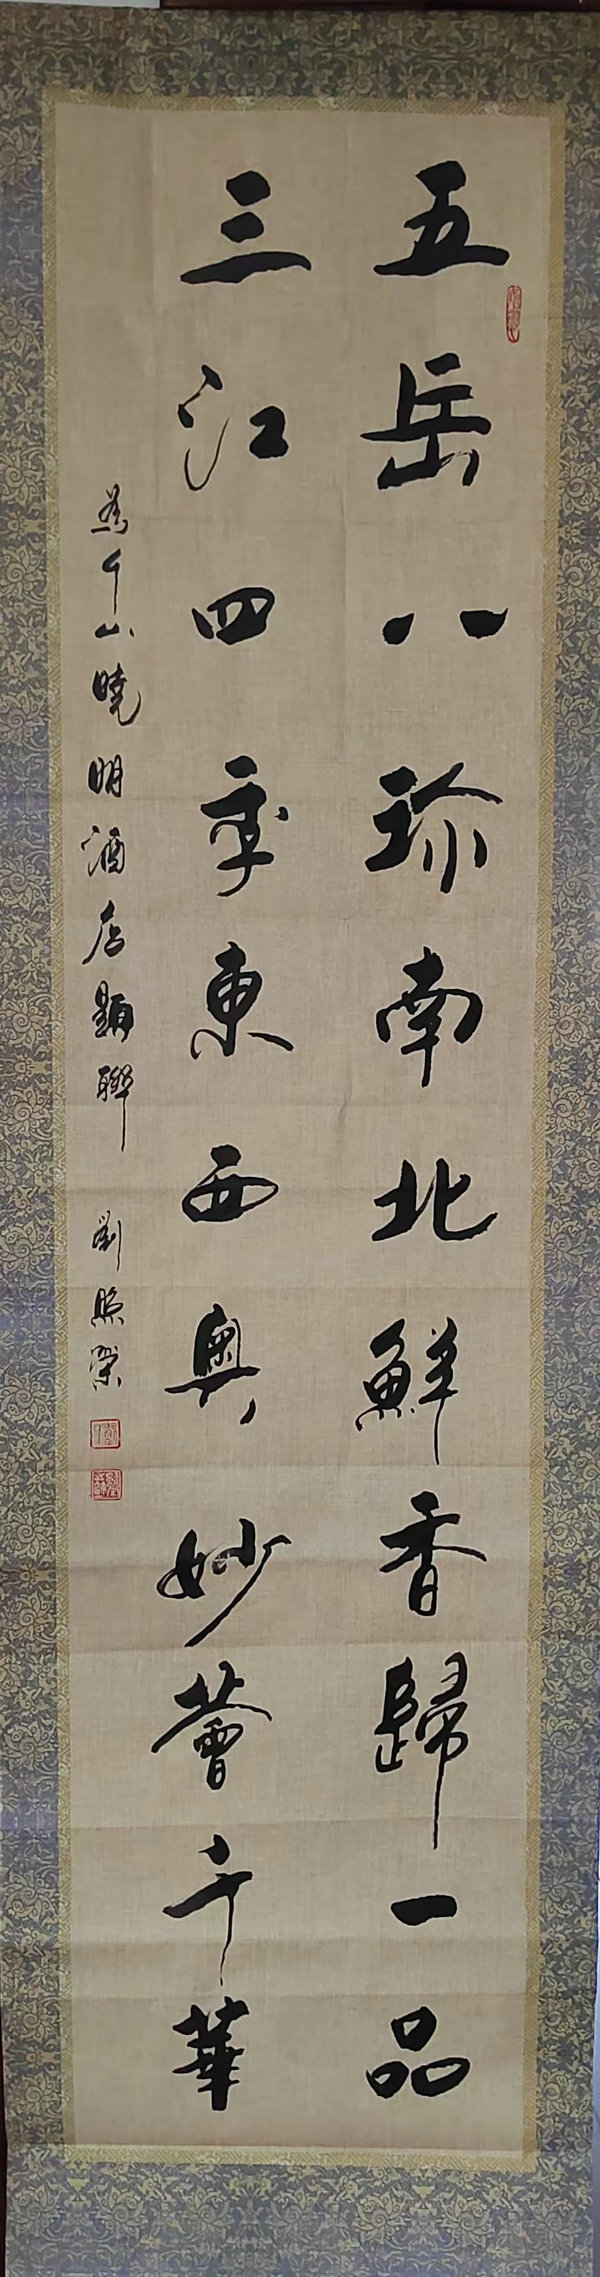 五岳八珍南北鮮香歸一品
三江四季東西奥妙薈千華
為千山曉明酒店題聯 劉照榮